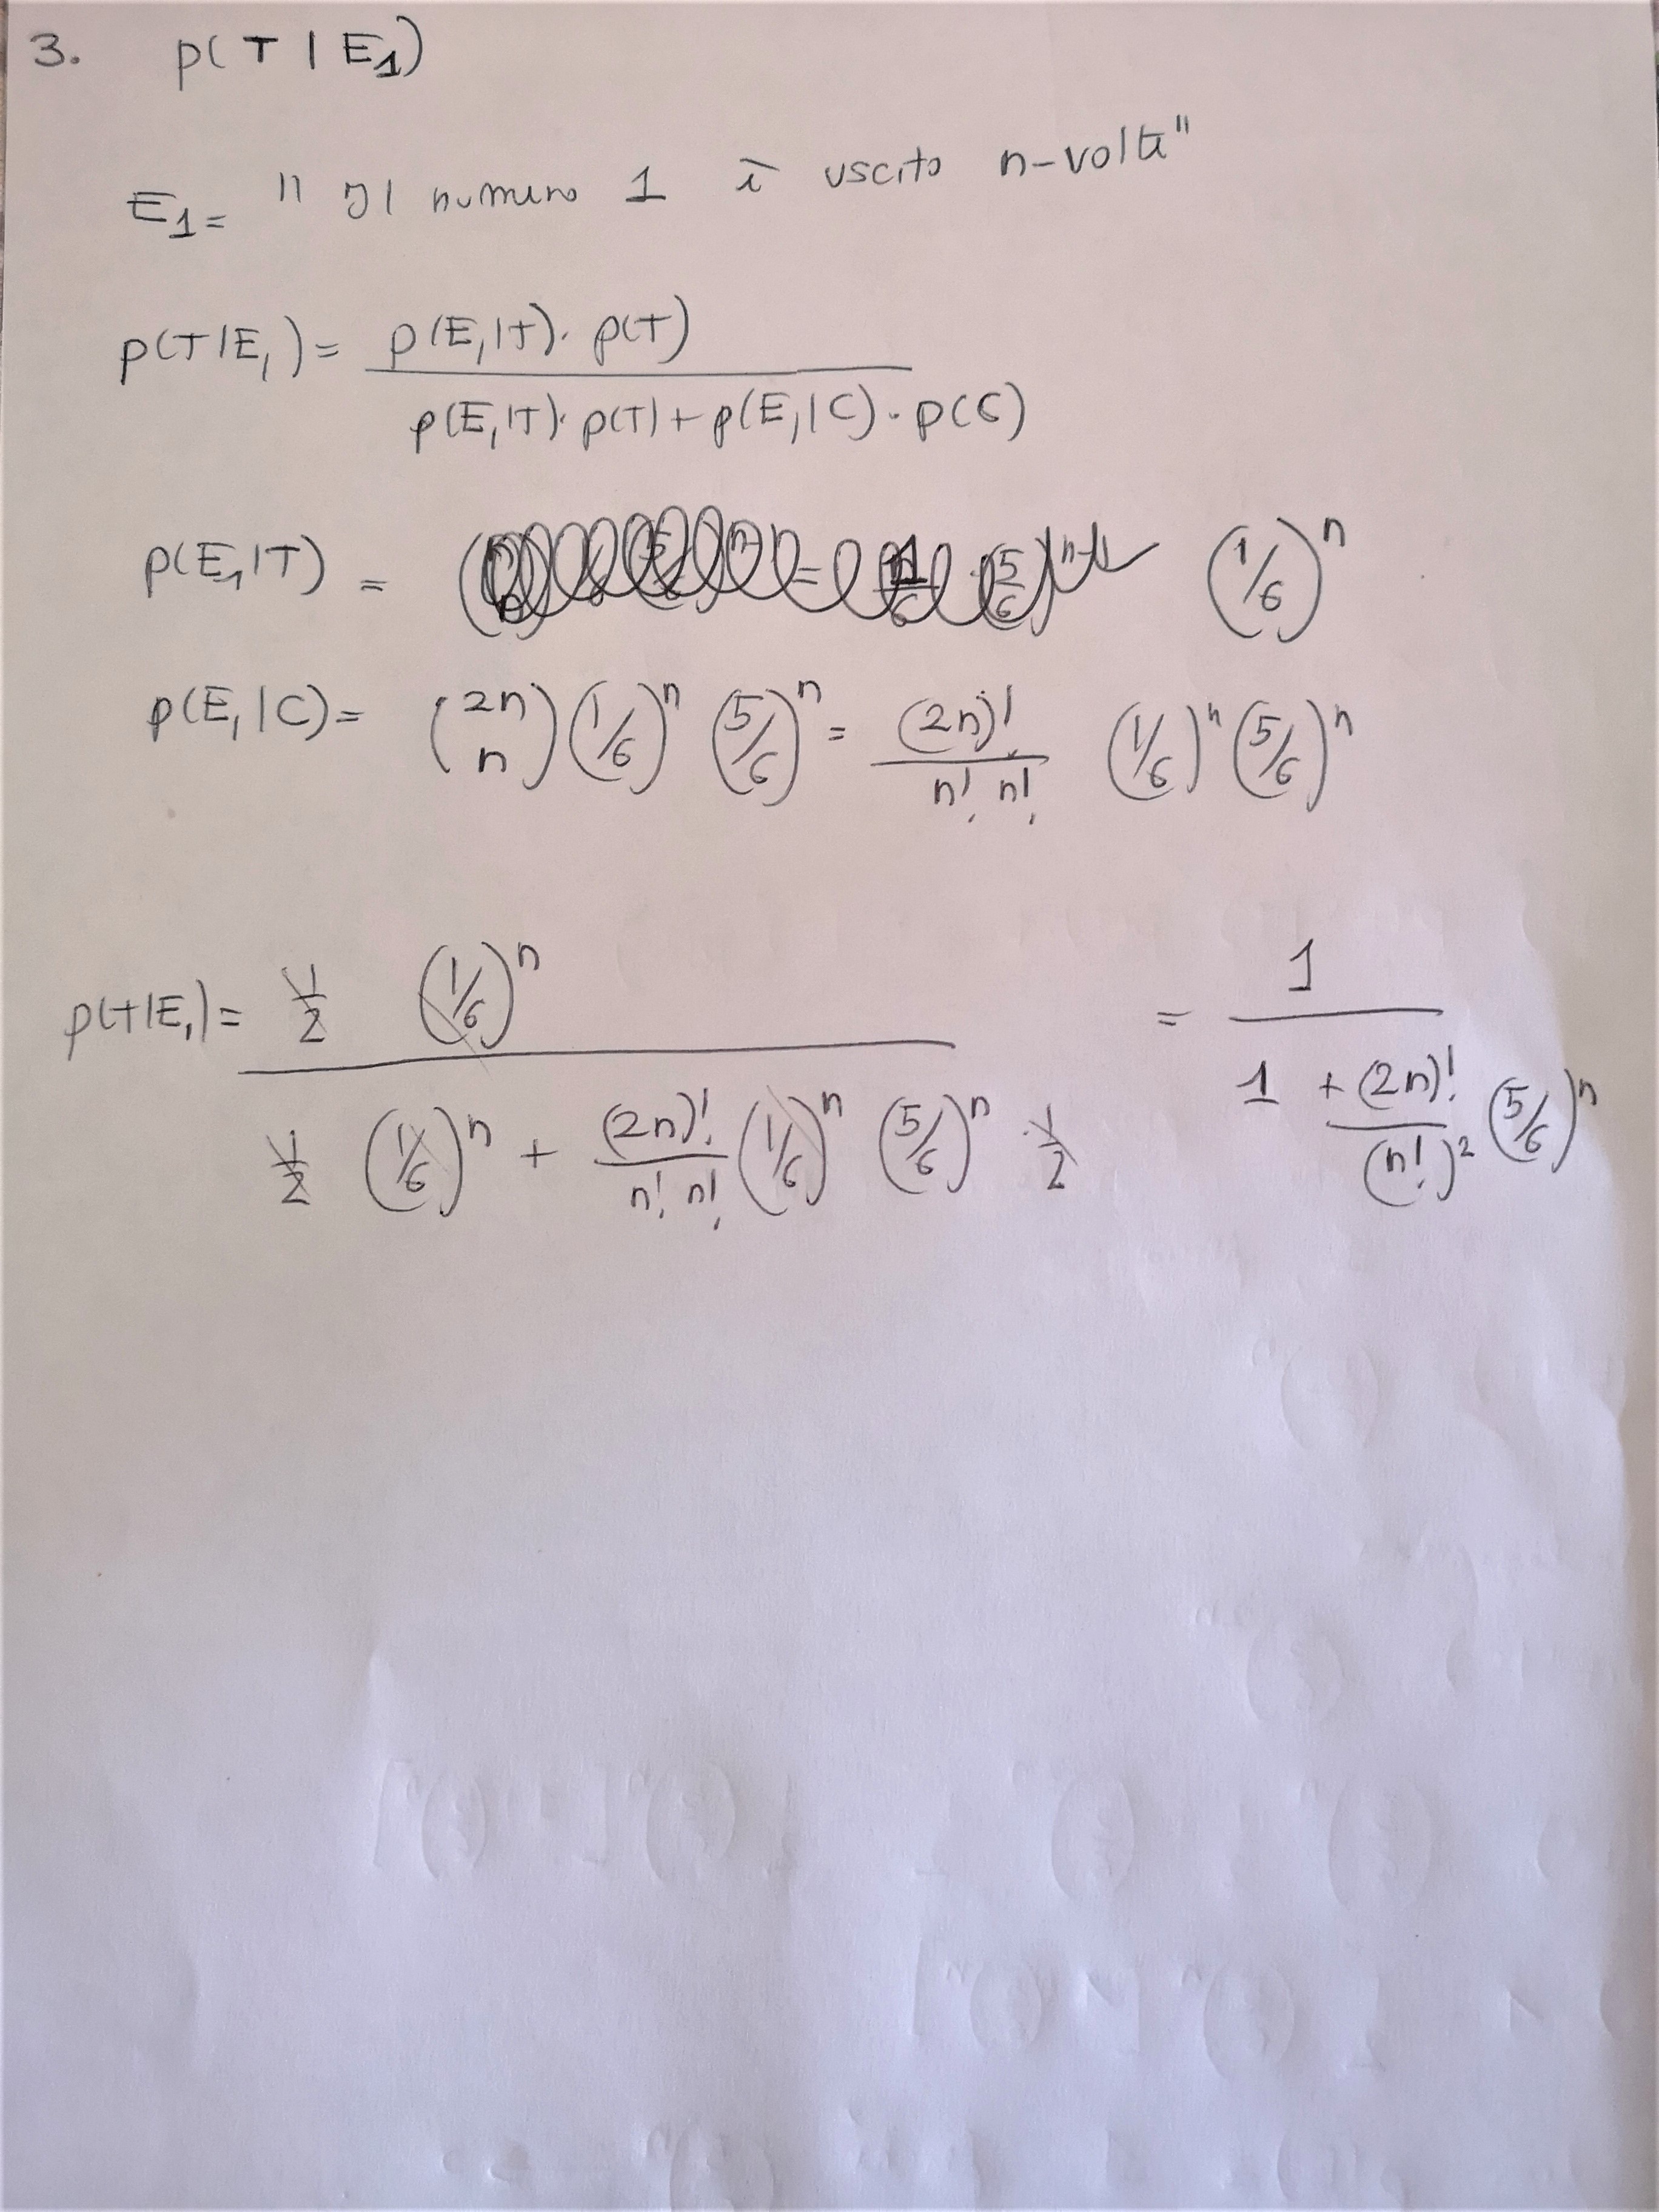 3. p(T | E1)
E1 = "Il numero 1 è uscito n-volte"
p(T|E1) = p(E1|T) · p(T)
p(E1|T) · p(T) + p(E1|C) · p(C)
p(E1|T) = (1/6)^n
p(E1|C) = (2n n) (1/6)^n (5/6)^n = (2n)! / n! n! (1/6)^n (5/6)^n
p(T|E1) = 1/2 (1/6)^n = 1
1/2 (1/6)^n + (2n)! / n! n! (1/6)^n (5/6)^n · 1/2 1 + (2n)! / (n!)^2 (5/6)^n